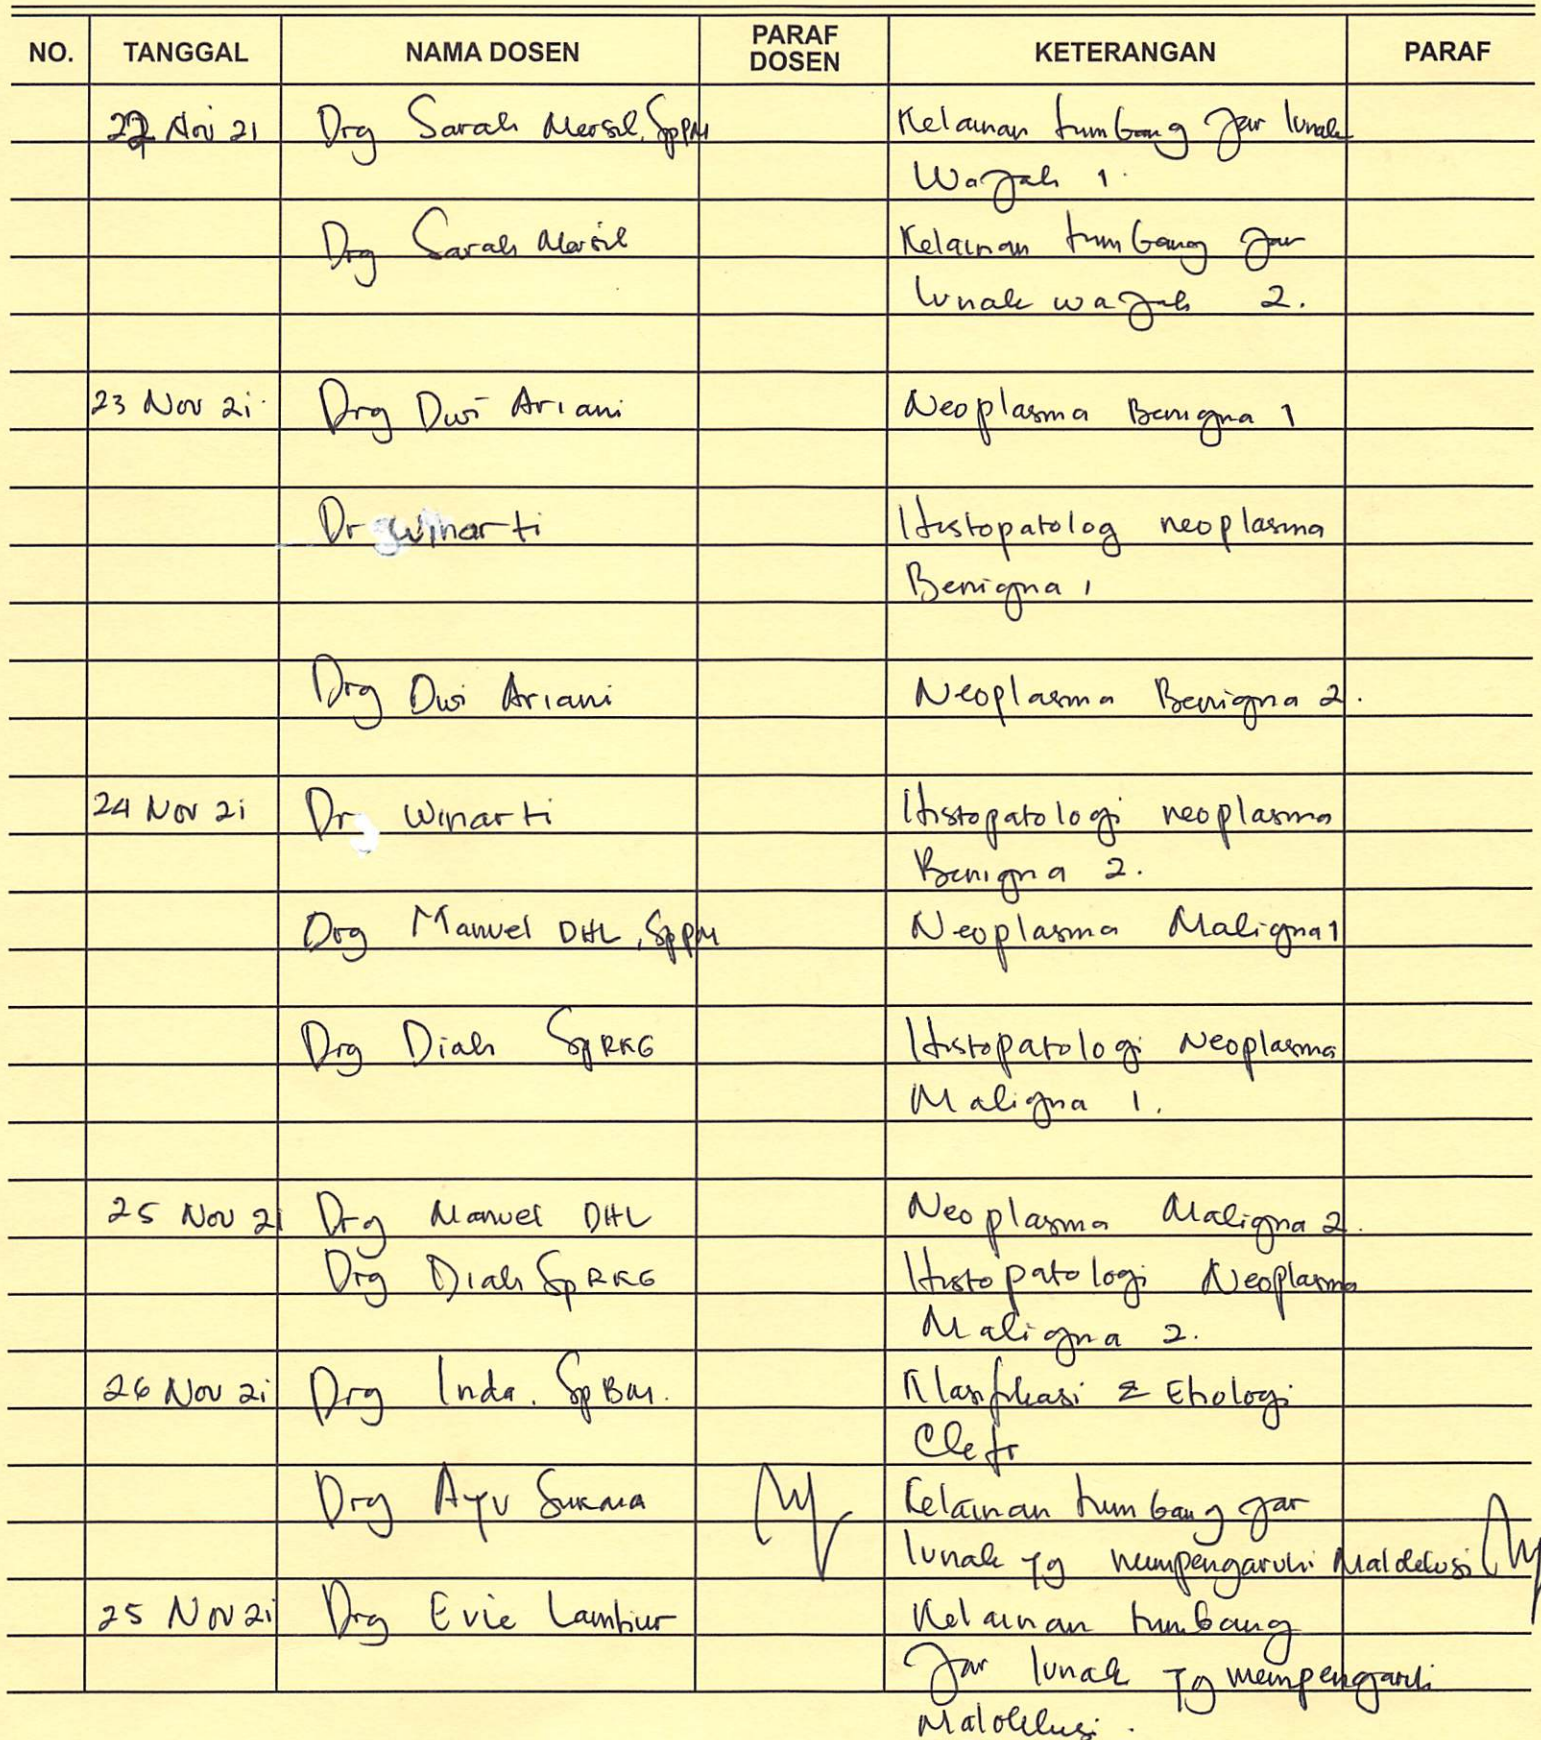 NO. TANGGAL NAMA DOSEN PARAF DOSEN KETERANGAN PARAF
22 Nov 21 Drg Sarah Mersil, SpPM Kelainan tumbang Jar lunak
Wajah 1.
Drg Sarah Mersil Kelainan tumbang Jar
lunak wajah 2.
23 Nov 21 Drg Dwi Ariani Neoplasma Benigna 1
Dr Winarti Histopatolog neoplasma
Benigna 1
Drg Dwi Ariani Neoplasma Benigna 2.
24 Nov 21 Dr Winarti Histopatologi neoplasma
Benigna 2.
Drg Manuel DHL, SpPM Neoplasma Maligna 1
Drg Diah SpRKG Histopatologi Neoplasma
Maligna 1.
25 Nov 21 Drg Manuel DHL Neoplasma Maligna 2.
Drg Diah SpRKG Histopatologi Neoplasma
Maligna 2.
26 Nov 21 Drg Inda. SpBM. Klasifikasi & Etiologi
Cleft
Drg Ayu Sukma Kelainan tumbang jar
lunak yg mempengaruhi Maloklusi
25 Nov 21 Drg Evie Lambiur Kelainan tumbang
Jar lunak yg mempengaruhi
Maloklusi.